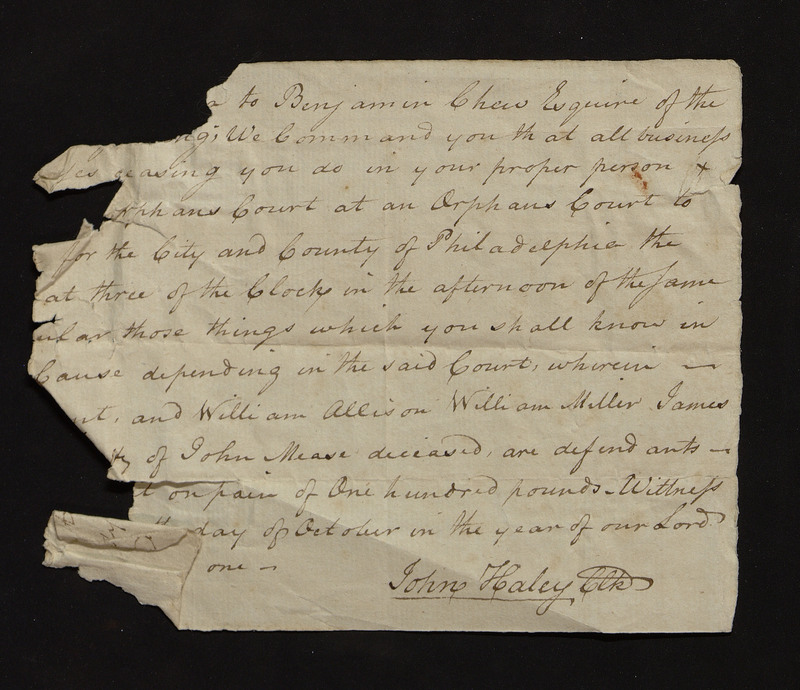 to Benjamin Chew Esquire of the
We Command you that all business
ceasing you do in your proper person &
Orphans Court at an Orphans Court to
for the City and County of Philadelphia the
at three of the Clock in the afternoon of the same
ular those things which you shall know in
Cause depending in the said Court, wherein —
and William Allison William Miller James
of John Mease deceased, are defendants —
on pain of One hundred pounds — Wittness
day of October in the year of our Lord
one —
John Haley Clk